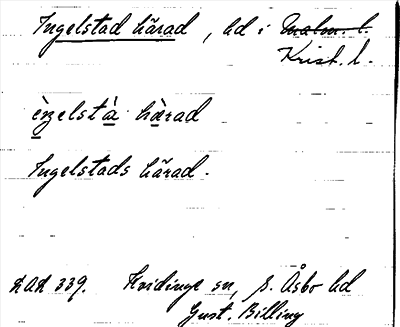 Ingelstad härad, hd i Malm. l.
Krist. l.
èngelstà hàrad
Ingelstads härad.
Kvidinge sn, S. Åsbo hd
Gust. Billing